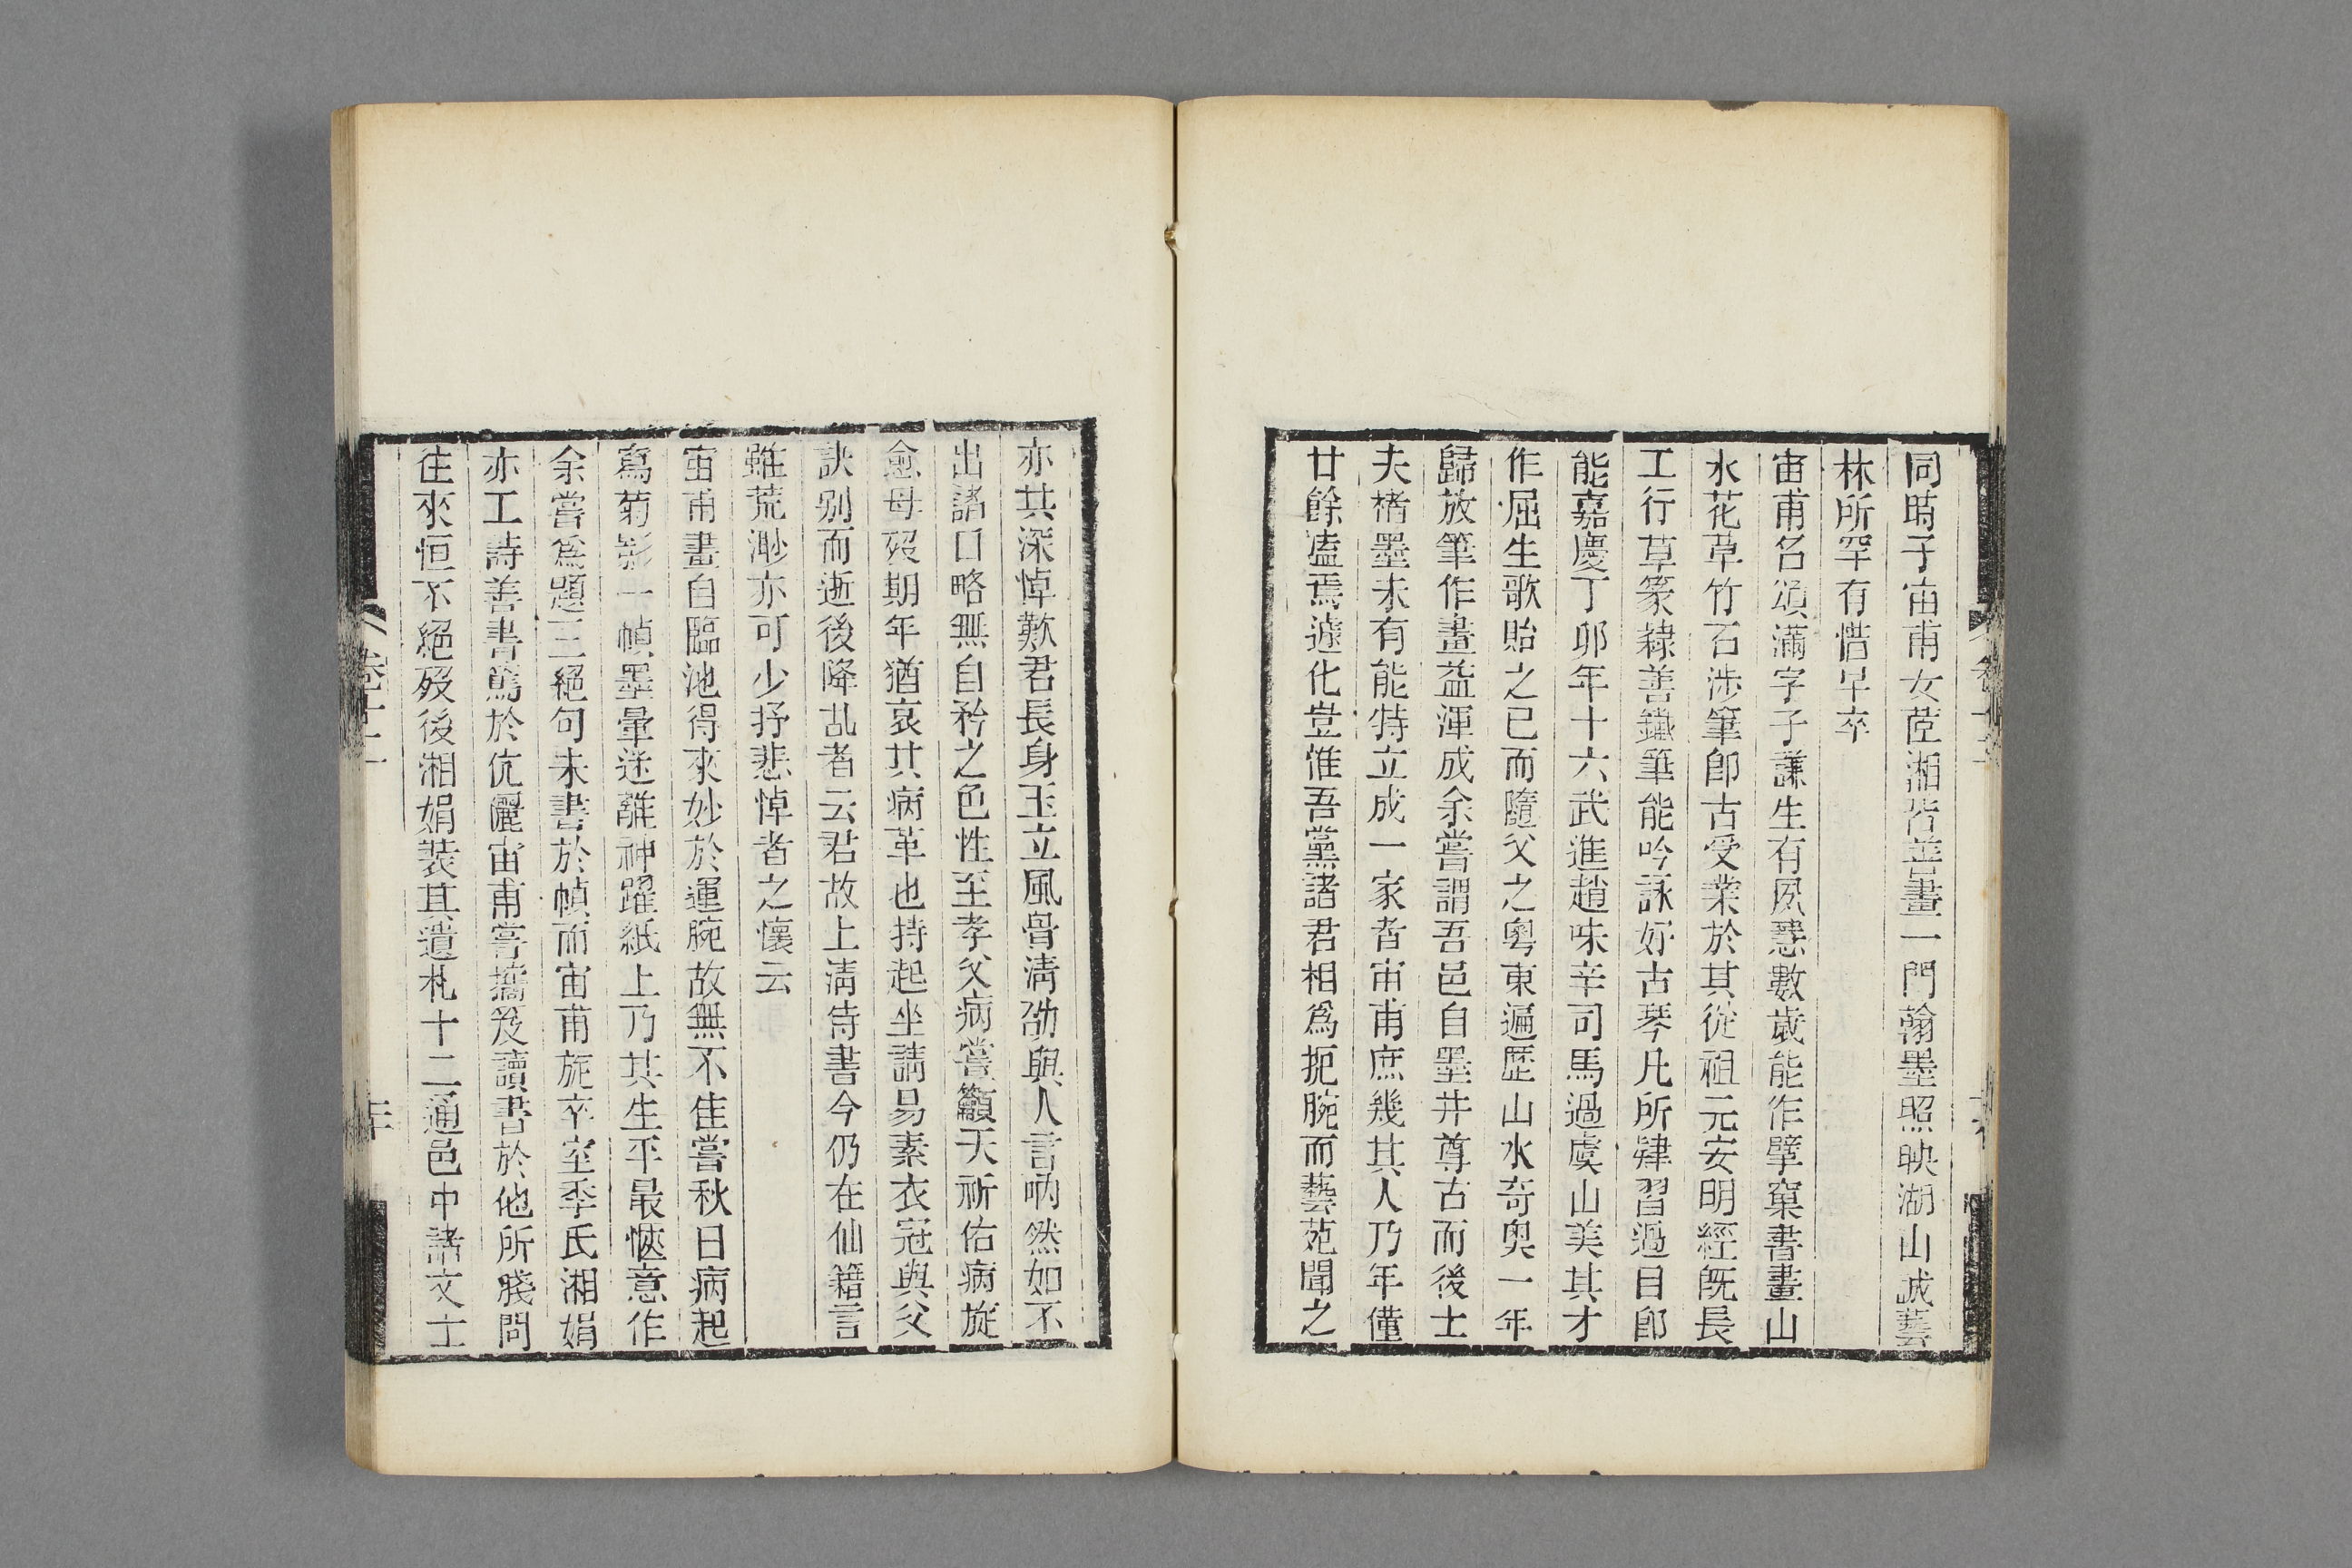 同時子宙甫女茝湘皆善畫一門翰墨照映湖山誠藝
林所罕有惜早卒
宙甫名頌滿字子謙生有夙慧數歲能作擘窠書畫山
水花草竹石涉筆卽古受業於其從祖元安明經旣長
工行草篆隸善鐵筆能吟詠好古琴凡所肄習過目卽
能嘉慶丁卯年十六武進趙味辛司馬過虞山美其才
作屈生歌貽之已而隨父之粵東遍歷山水奇奧一年
歸放筆作畫益渾成余嘗謂吾邑自墨井尊古而後士
夫楮墨未有能特立成一家者宙甫庶幾其人乃年僅
廿餘溘焉遽化豈惟吾黨諸君相爲扼腕而藝苑聞之
亦共深悼歎君長身玉立風骨淸劭與人言吶然如不
出諸口略無自矜之色性至孝父病嘗籲天祈佑病旋
愈母歿期年猶哀其病革也持起坐請易素衣冠與父
訣别而逝後降乩者云君故上淸侍書今仍在仙籍言
雖荒渺亦可少抒悲悼者之懷云
宙甫畫自臨池得來妙於運腕故無不佳嘗秋日病起
寫菊影一幀墨暈迷離神躍紙上乃其生平最愜意作
余嘗爲題三絕句未書於幀而宙甫旋卒室季氏湘娟
亦工詩善書篤於伉儷宙甫嘗擕笈讀書於他所牋問
往來恒不絕歿後湘娟裝其遺札十二通邑中諸文士
卷十二